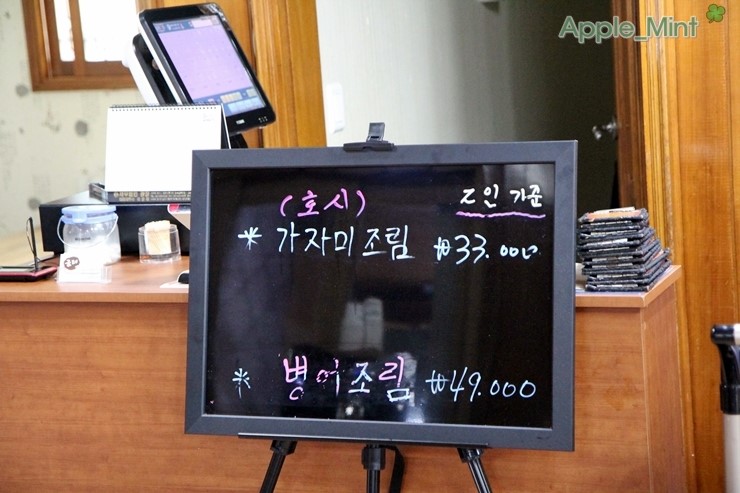 Apple_Mint
(호시) 2인 가준
* 가자미조림 ₩33.000
* 병어조림 ₩49.000